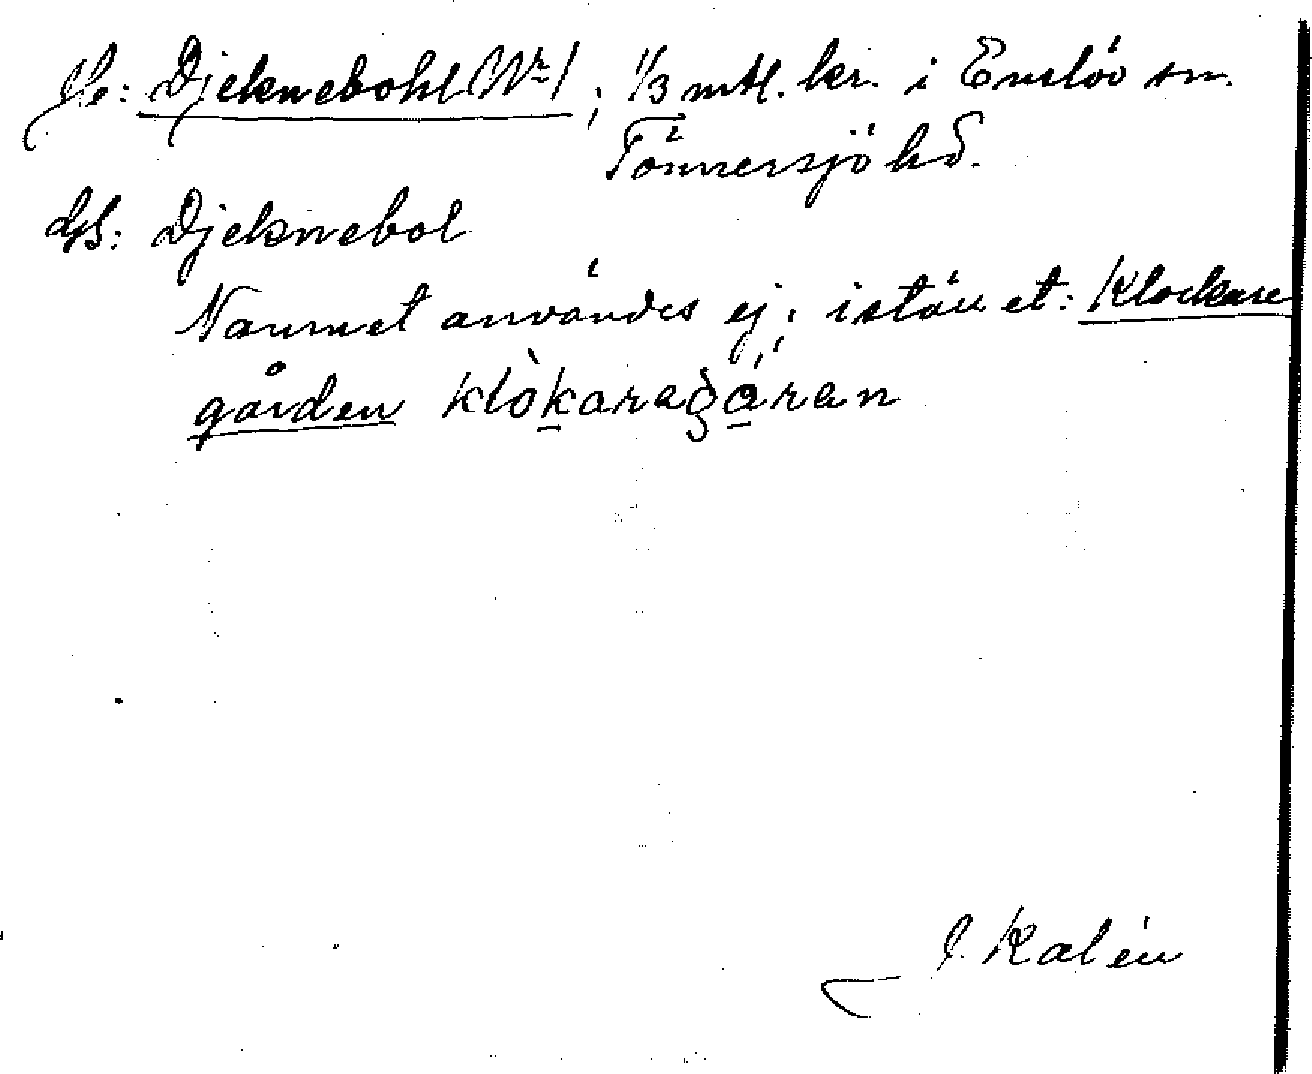 Jb: Djeknebohl No 1; 1/3 mtl. kr. i Enslöv sn.
Tönnersjö hd.
GS: Djeknebol
Namnet användes ej; istället: Klockare
gården klòkaragǻran
J. Kalén